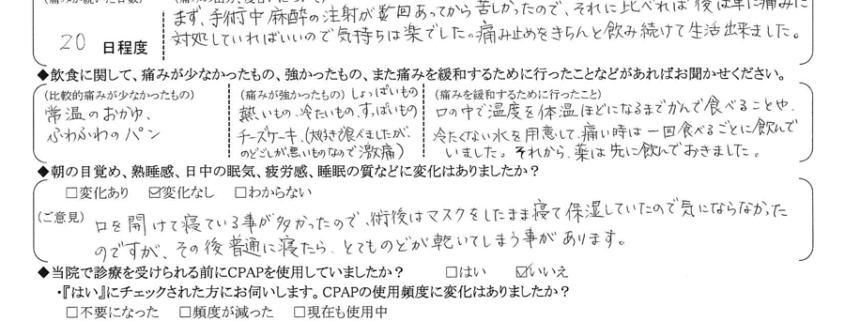 まず、手術中麻酔の注射が数回あってから苦しかったので、それに比べれば後は単に痛みに
20 日程度
対処していればいいので気持ちは楽でした。痛み止めをきちんと飲み続けて生活出来ました。
◆飲食に関して、痛みが少なかったもの、強かったもの、また痛みを緩和するために行ったことなどがあればお聞かせください。
(比較的痛みが少なかったもの)
常温のおかゆ、
ふわふわのパン
(痛みが強かったもの) しょっぱいもの
熱いもの、冷たいもの、すっぱいもの
チーズケーキ、(大好きで食べましたが、
のどごしが悪いものなので激痛)
(痛みを緩和するために行ったこと)
口の中で温度を体温ほどになるまでかんで食べることや、
冷たくない水を用意して、痛い時は一回食べるごとに飲んで
いました。それから、薬は先に飲んでおきました。
◆朝の目覚め、熟睡感、日中の眠気、疲労感、睡眠の質などに変化はありましたか?
□変化あり ☑変化なし □わからない
(ご意見) 口を開けて寝ている事が多かったので、術後はマスクをしたまま寝て保湿していたので気にならなかった
のですが、その後普通に寝たら、とてものどが乾いてしまう事があります。
◆当院で診療を受けられる前にCPAPを使用していましたか? □はい ☑いいえ
・『はい』にチェックされた方にお伺いします。CPAPの使用頻度に変化はありましたか?
□不要になった □頻度が減った □現在も使用中